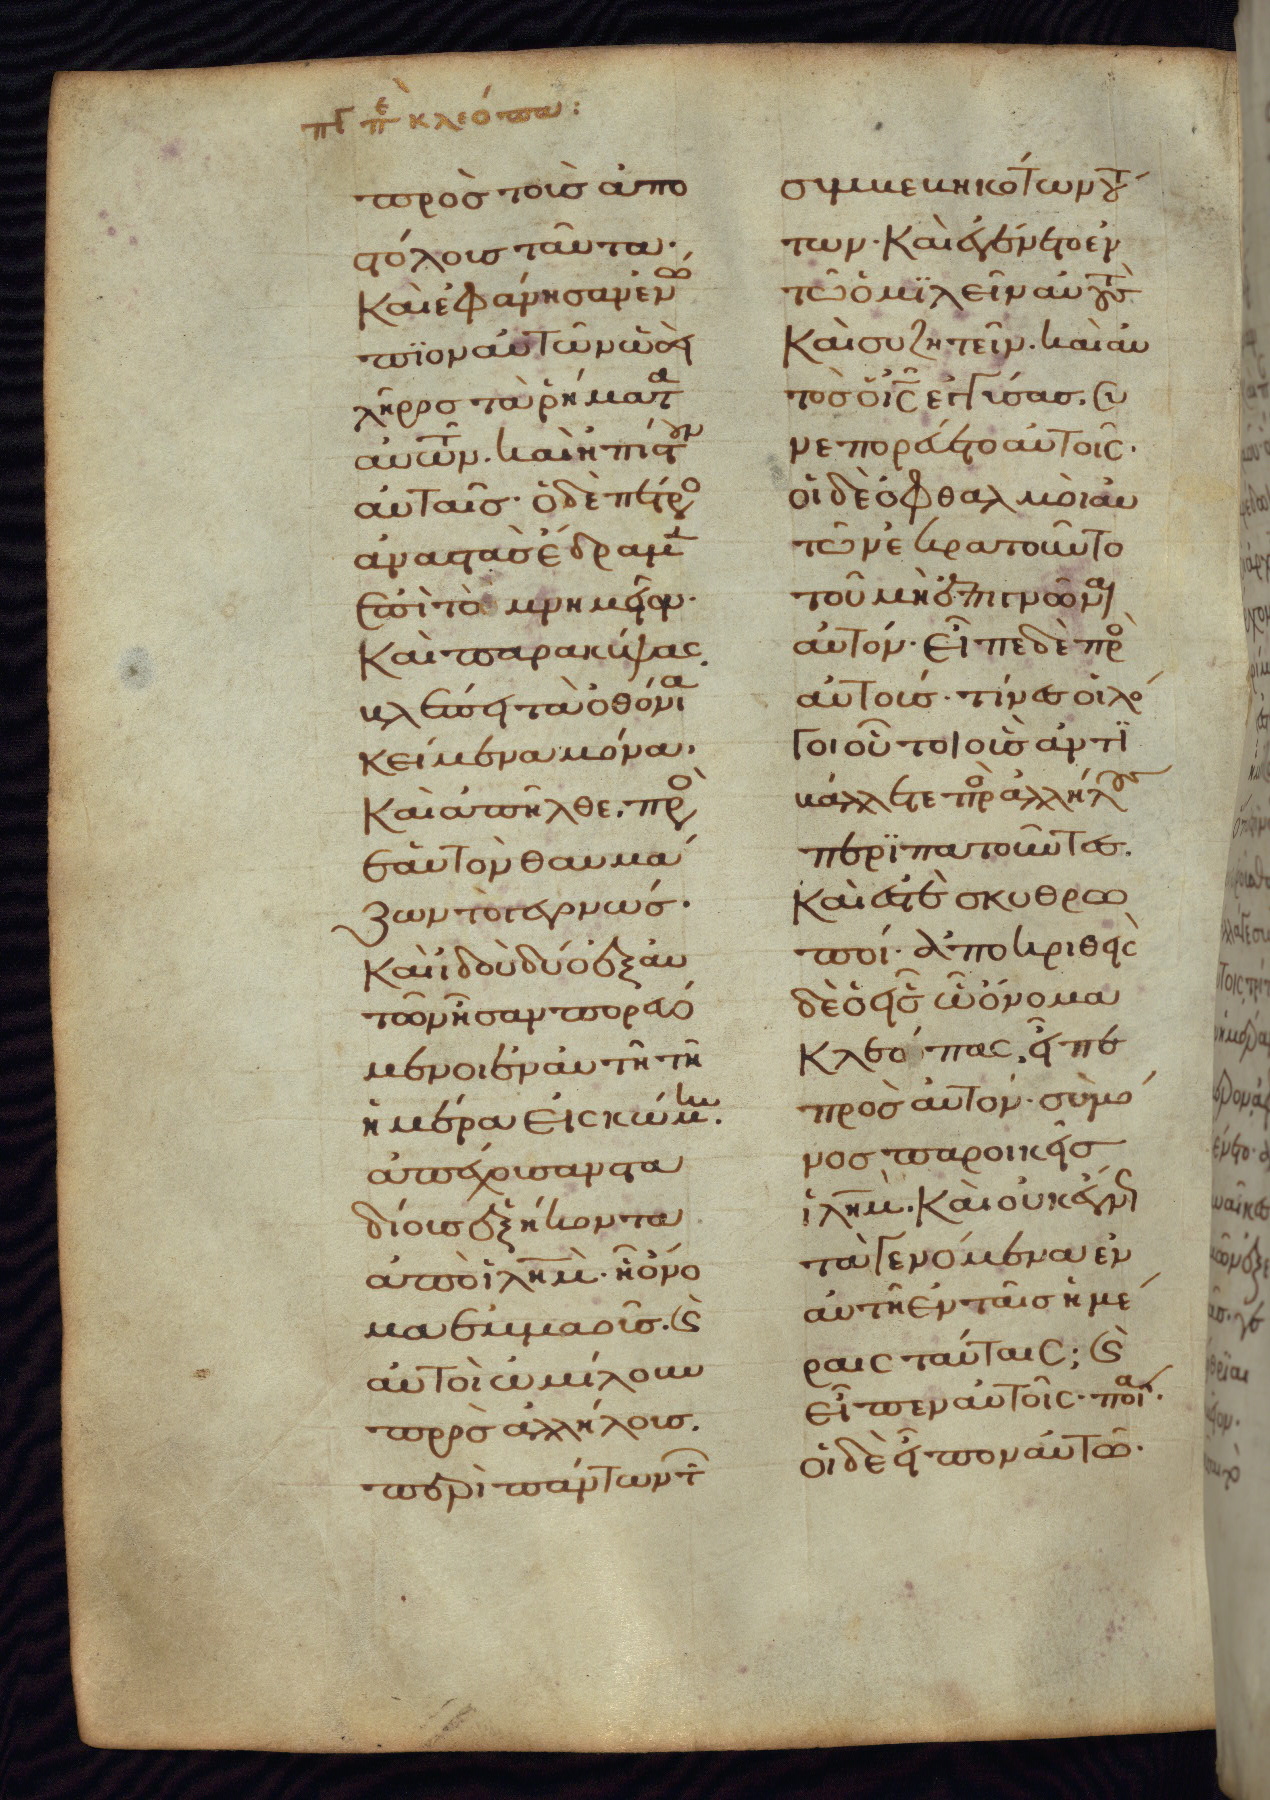 πγ πε κλεόπα:
πρὸσ τοῖσ ἀπο
στόλοισ ταῦτα·
Καὶ ἐφάνησαν ἐνώ
πϊον αὐτῶν ὡσεὶ
λῆρος τὰ ῥήματα
αὐτῶν. καὶ ἠπίστουν
αὐταῖσ· ὁ δὲ πέτρο
ἀναστὰσ ἔδραμε
ἐπὶ τὸ μνημεῖον·
Καὶ παρακύψας
βλέπει τὰ ὀθόνια
κείμενα μόνα.
Καὶ ἀπῆλθε, πρὸ
ἑαὐτὸν θαυμά
ζων τὸ γεγονώσ·
Καὶ ἰδοὺ δύο ἐξ αὐ
τῶν ἦσαν πορευό
μενοι ἐν αὐτῆ τῆ
ἡμέρα εἰς κώμην.
ἀπέχουσαν στα
δίουσ ἑξήκοντα
ἀπὸ ἱλημ̀· ἧ ὄνο
μα ἐμμαοῦσ. Καὶ
αὐτοὶ ὡμίλουν
πρὸσ ἀλλήλουσ.
περὶ πάντων τῶν
συμβεβηκότων τού
των· Καὶ ἐγένετο ἐν
τῶ ὁμϊλεῖν αὐτοὺσ
Καὶ συζητεῖν. καὶ αὐ
τὸσ ὁ ις ἐγγίσασ. Συ
νεπορεύετο αὐτοῖς·
οἱ δὲ ὀφθαλμοὶ αὐ
τῶν ἐκρατοῦντο
τοῦ μὴ ἐπιγνῶναι
αὐτόν· Εἶπε δὲ πρὸ
αὐτούσ· τίνεσ οἱ λό
γοι οὗτοι οὓσ ἀντϊ
βάλλετε πρὸ ἀλλήλουσ
περϊπατοῦντεσ.
Καὶ ἐστὲ σκυθρω
ποί· ἀποκριθεὶς
δὲ ὁ εἷς ὧ ὄνομα
Κλεόπας, εἶπε
πρὸσ αὐτόν· σὺ μό
νοσ παροικεῖσ
ἱλημ̀· Καὶ οὐκ ἔγνωσ
τὰ γενόμενα ἐν
αὐτῆ ἐν ταῖσ ἡμέ
ραις ταύταις; Καὶ
εἶπεν αὐτοῖς· ποῖα·
οἱ δὲ εἶπον αὐτῶ·